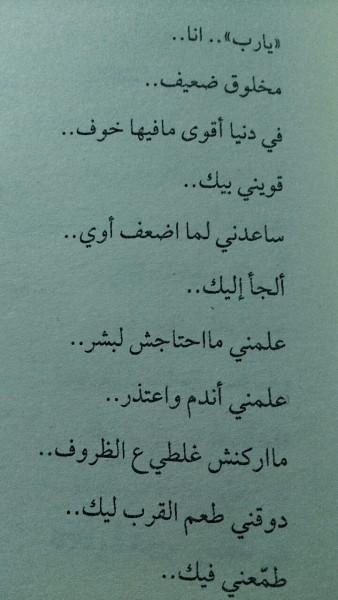 «يارب».. انا..
مخلوق ضعيف..
في دنيا أقوى مافيها خوف..
قويني بيك..
ساعدني لما اضعف أوي..
ألجأ إليك..
علمني مااحتاجش لبشر..
علمني أندم واعتذر..
مااركنش غلطي ع الظروف..
دوقني طعم القرب ليك..
طمّعني فيك..